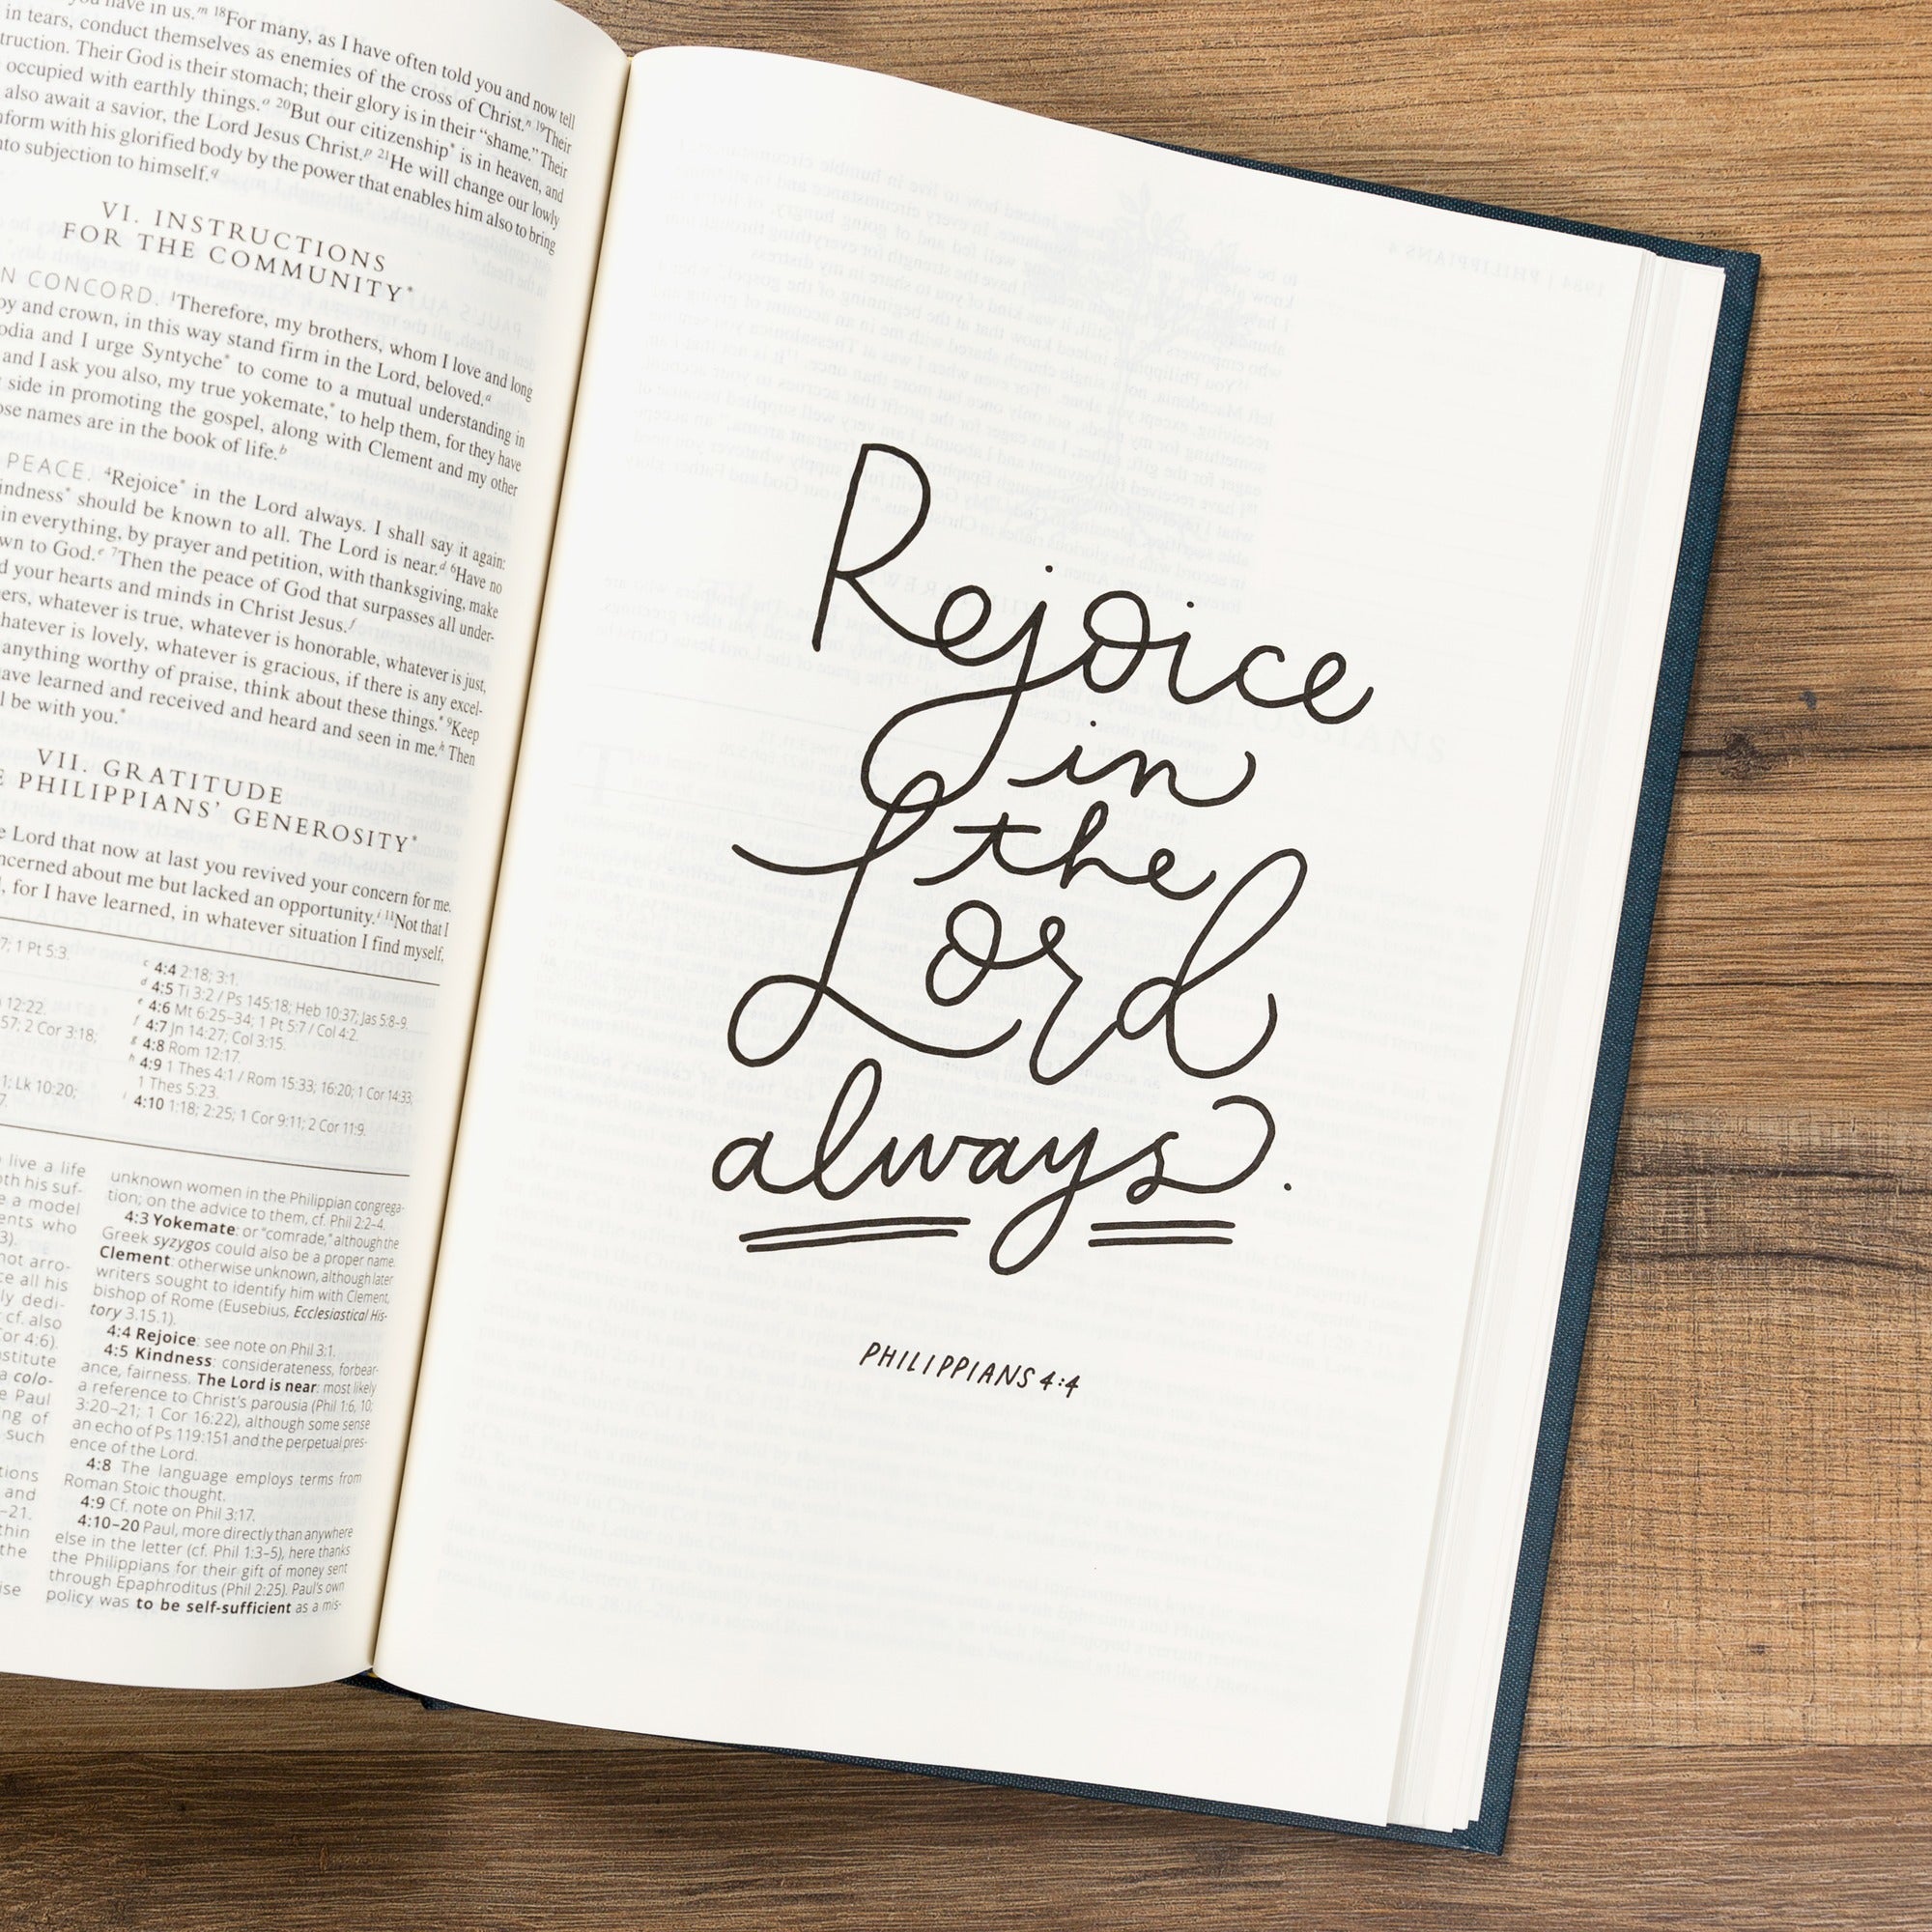 you have in us.ᵐ ¹⁸For many, as I have often told you and now tell
in tears, conduct themselves as enemies of the cross of Christ.ⁿ ¹⁹Their
truction. Their God is their stomach; their glory is in their “shame.” Their
occupied with earthly things.ᵒ ²⁰But our citizenship* is in heaven, and
also await a savior, the Lord Jesus Christ.ᵖ ²¹He will change our lowly
nform with his glorified body by the power that enables him also to bring
nto subjection to himself.q
VI. INSTRUCTIONS
FOR THE COMMUNITY*
N CONCORD. ¹Therefore, my brothers, whom I love and long
oy and crown, in this way stand firm in the Lord, beloved.ᵃ
odia and I urge Syntyche* to come to a mutual understanding in
and I ask you also, my true yokemate,* to help them, for they have
side in promoting the gospel, along with Clement and my other
ose names are in the book of life.ᵇ
PEACE. ⁴Rejoice* in the Lord always. I shall say it again:
indness* should be known to all. The Lord is near.ᵈ ⁶Have no
in everything, by prayer and petition, with thanksgiving, make
wn to God.ᵉ ⁷Then the peace of God that surpasses all under-
d your hearts and minds in Christ Jesus.ᶠ
ers, whatever is true, whatever is honorable, whatever is just,
hatever is lovely, whatever is gracious, if there is any excel-
anything worthy of praise, think about these things.* ⁹Keep
ave learned and received and heard and seen in me.ʰ Then
l be with you.*
VII. GRATITUDE
E PHILIPPIANS’ GENEROSITY*
e Lord that now at last you revived your concern for me.
ncerned about me but lacked an opportunity.ⁱ ¹¹Not that I
, for I have learned, in whatever situation I find myself,
7; 1 Pt 5:3.
12:22.
57; 2 Cor 3:18;
1; Lk 10:20;
7.
ᶜ 4:4 2:18; 3:1.
ᵈ 4:5 Ti 3:2 / Ps 145:18; Heb 10:37; Jas 5:8–9.
ᵉ 4:6 Mt 6:25–34; 1 Pt 5:7 / Col 4:2.
ᶠ 4:7 Jn 14:27; Col 3:15.
ᵍ 4:8 Rom 12:17.
ʰ 4:9 1 Thes 4:1 / Rom 15:33; 16:20; 1 Cor 14:33;
1 Thes 5:23.
ⁱ 4:10 1:18; 2:25; 1 Cor 9:11; 2 Cor 11:9.
live a life
oth his suf-
e a model
ents who
3).
not arro-
ce all his
ly dedi-
cf. also
Cor 4:6).
nstitute
a colo-
e Paul
ng of
such
tions
and
–21.
thin
the
ise
unknown women in the Philippian congrega-
tion; on the advice to them, cf. Phil 2:2–4.
4:3 Yokemate: or “comrade,” although the
Greek syzygos could also be a proper name.
Clement: otherwise unknown, although later
writers sought to identify him with Clement,
bishop of Rome (Eusebius, Ecclesiastical His-
tory 3.15.1).
4:4 Rejoice: see note on Phil 3:1.
4:5 Kindness: considerateness, forbear-
ance, fairness. The Lord is near: most likely
a reference to Christ’s parousia (Phil 1:6, 10;
3:20–21; 1 Cor 16:22), although some sense
an echo of Ps 119:151 and the perpetual pres-
ence of the Lord.
4:8 The language employs terms from
Roman Stoic thought.
4:9 Cf. note on Phil 3:17.
4:10–20 Paul, more directly than anywhere
else in the letter (cf. Phil 1:3–5), here thanks
the Philippians for their gift of money sent
through Epaphroditus (Phil 2:25). Paul’s own
policy was to be self-sufficient as a mis-
Rejoice
in
the
Lord
always.
PHILIPPIANS 4:4